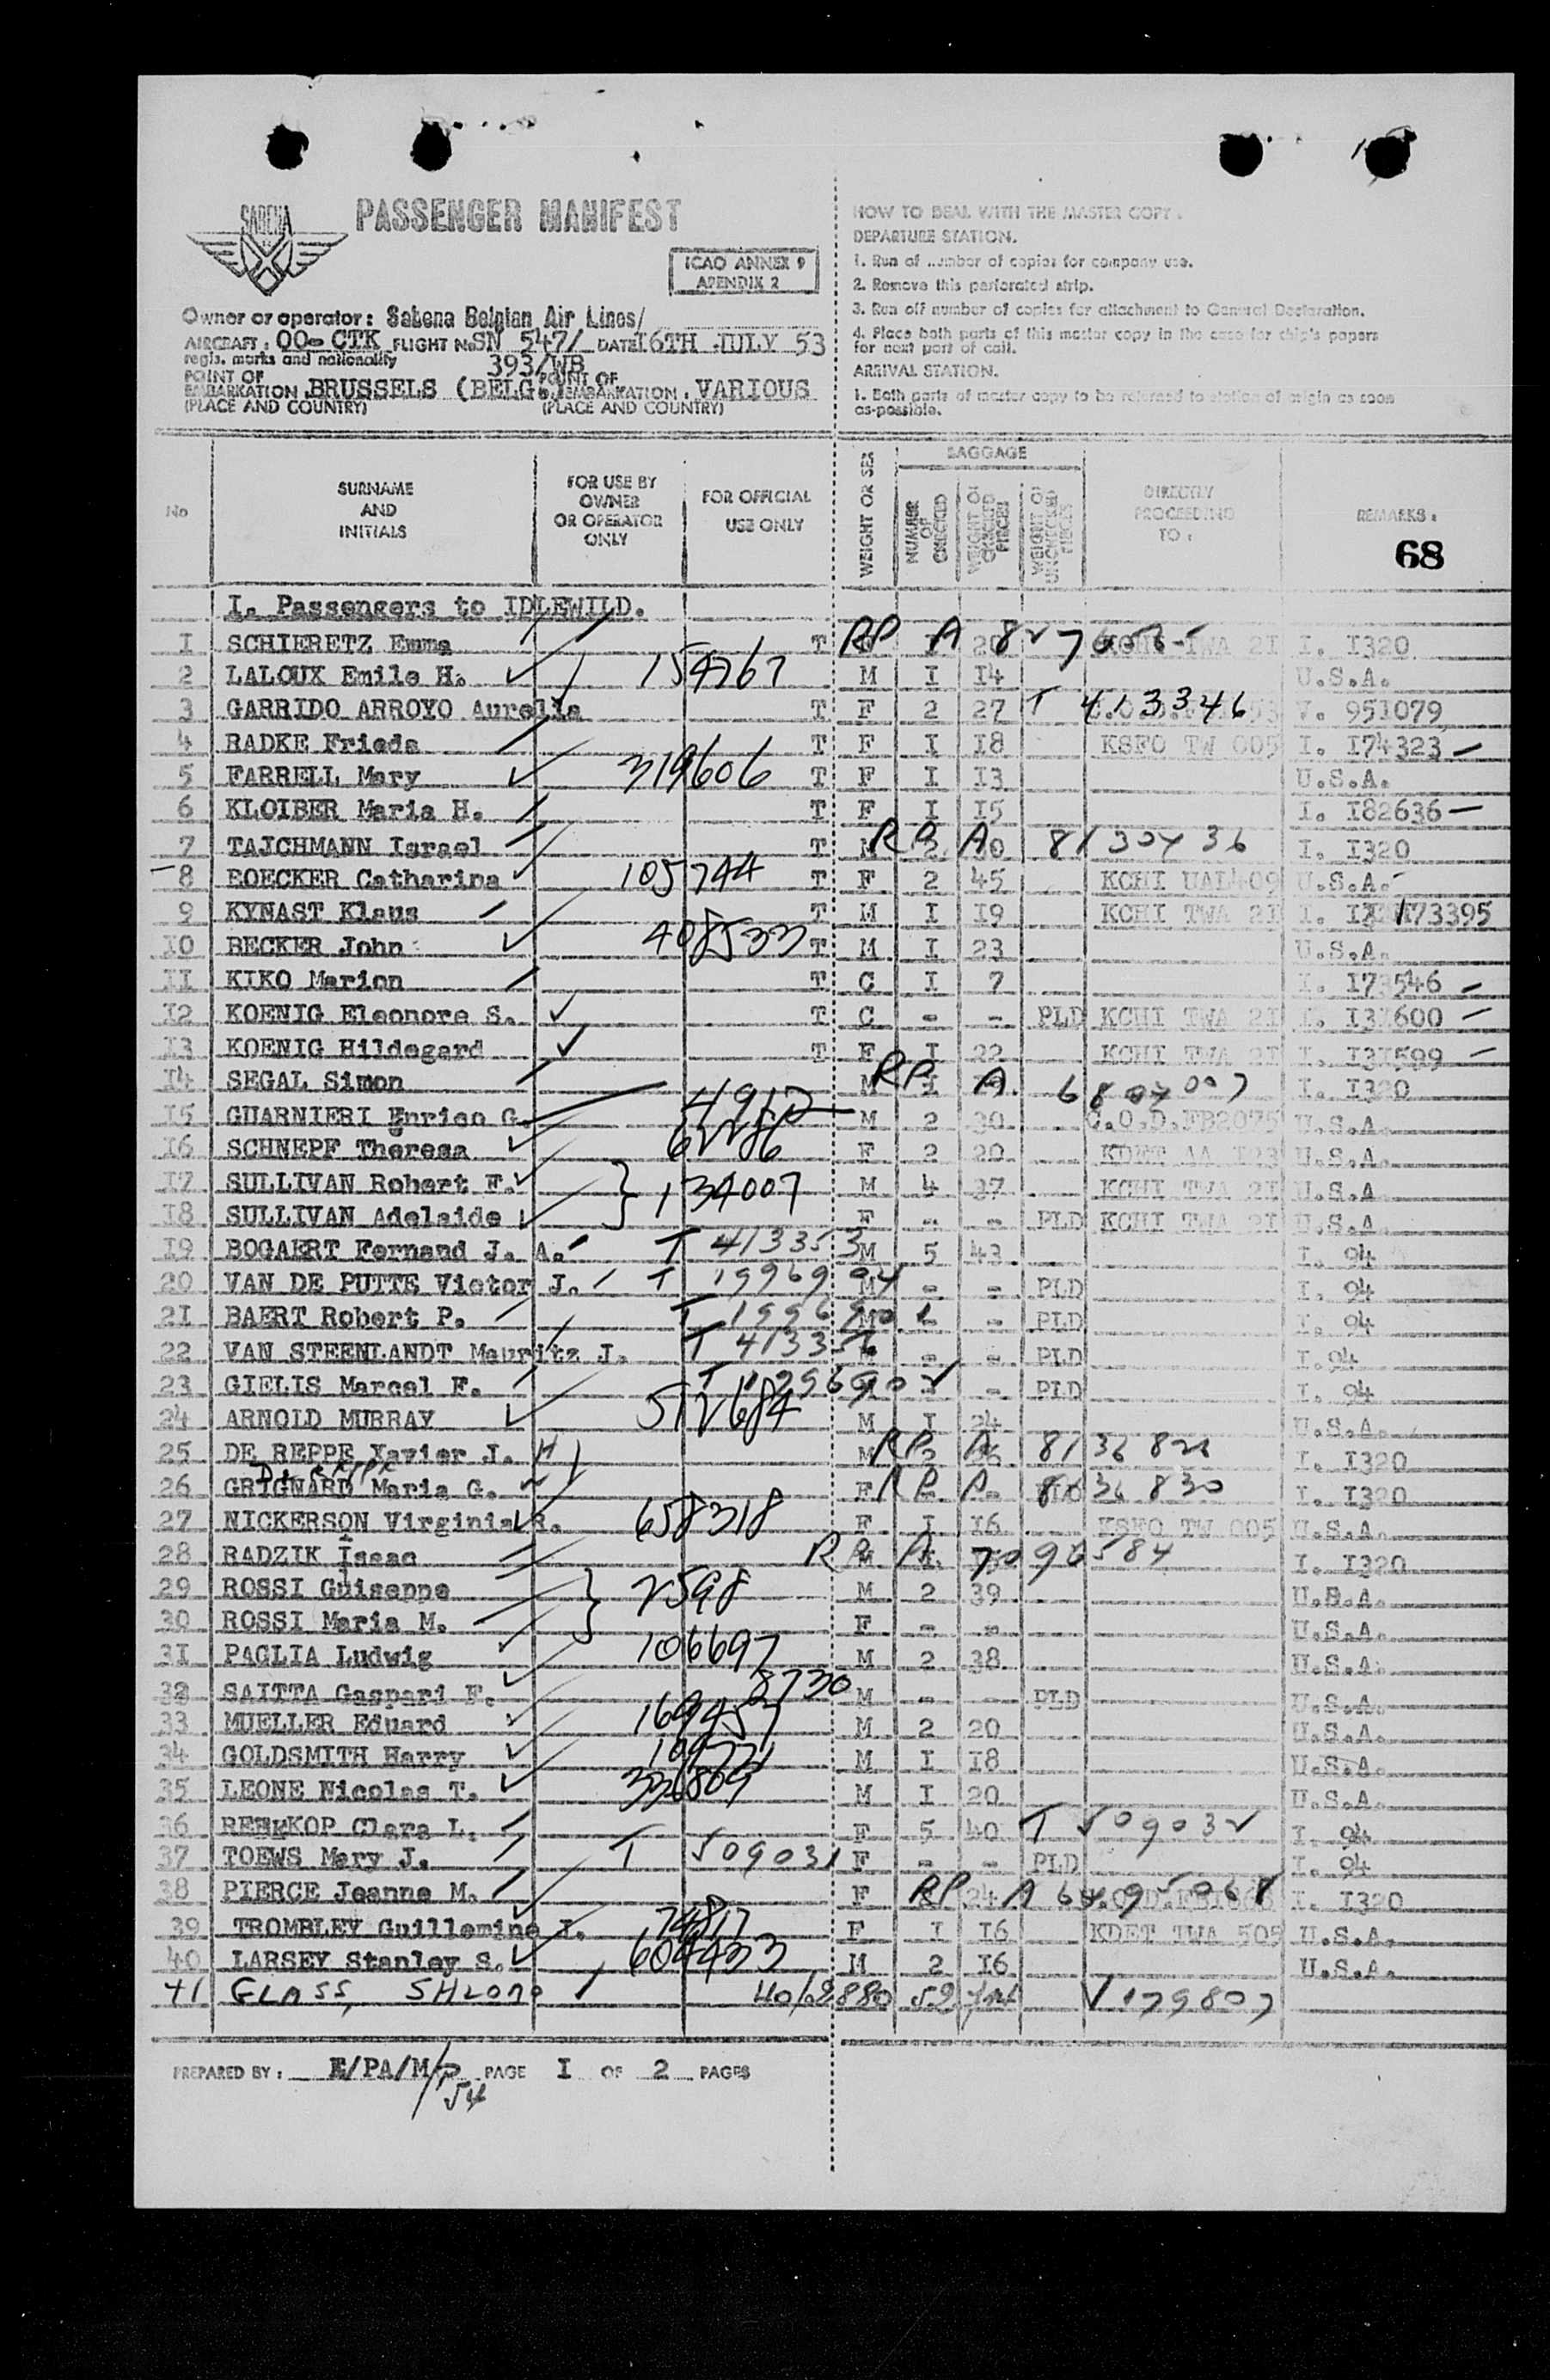 SABENA
PASSENGER MANIFEST
ICAO ANNEX 9
APENDIX 2
Owner or operator: Sabena Belgian Air Lines/
AIRCRAFT: OO-CTK FLIGHT No SN 547/ DATE 16TH JULY 53
regis. marks and nationality 393/WB
POINT OF EMBARKATION BRUSSELS (BELG.) POINT OF EMBARKATION. VARIOUS
(PLACE AND COUNTRY) (PLACE AND COUNTRY)
HOW TO DEAL WITH THE MASTER COPY.
DEPARTURE STATION.
1. Run of number of copies for company use.
2. Remove this perforated strip.
3. Run off number of copies for attachment to General Declaration.
4. Place both parts of this master copy in the case for ship's papers
for next port of call.
ARRIVAL STATION.
1. Both parts of master copy to be returned to station of origin as soon
as possible.
No SURNAME AND INITIALS FOR USE BY OWNER OR OPERATOR ONLY FOR OFFICIAL USE ONLY WEIGHT OR SEX BAGGAGE NUMBER OF CHECKED WEIGHT OF CHECKED PIECES WEIGHT OF UNCHECKED PIECES DIRECTLY PROCEEDING TO: REMARKS:
68
I. Passengers to IDLEWILD.
1 SCHIERETZ Emma T RP A TWA 21 I. I320
2 LALOUX Emile H. 154767 M I 14 U.S.A.
3 GARRIDO ARROYO Aurelia T F 2 27 T 413346 V. 951079
4 RADKE Frieda T F I 18 KSFO TW 005 I. 174323
5 FARRELL Mary 319606 T F I 13 U.S.A.
6 KLOIBER Maria H. T F I 15 I. 182636
7 TAJCHMANN Israel T RP A I. I320
8 BOECKER Catharina 105744 T F 2 45 KCHI UAL409 U.S.A.
9 KYNAST Klaus T M I 19 KCHI TWA 21 I. 173395
10 BECKER John 408533 T M I 23 U.S.A.
11 KIKO Marion T C I 7 I. 173546
12 KOENIG Eleonore S. T C - - PLD KCHI TWA 21 I. 131600
13 KOENIG Hildegard T F I 22 KCHI TWA 21 I. 131599
14 SEGAL Simon M RP A I. I320
15 GUARNIERI Enrico G. M 2 30 C.O.D.FB2075 U.S.A.
16 SCHNEPF Theresa F 2 20 KDET AA 123 U.S.A.
17 SULLIVAN Robert F. 134007 M 4 37 KCHI TWA 21 U.S.A
18 SULLIVAN Adelaide F - - PLD KCHI TWA 21 U.S.A.
19 BOGAERT Fernand J. A. T 413353 M 5 43 I. 94
20 VAN DE PUTTE Victor J. T M - - PLD I. 94
21 BAERT Robert P. T M - - PLD I. 94
22 VAN STEENLANDT Mauritz J. T - - PLD I.94
23 GIELIS Marcel F. T - PLD I. 94
24 ARNOLD MURRAY 512684 M I 24 U.S.A.
25 DE REPPE Xavier J. H RP A I. I320
26 GRIGNARD Maria G. F RP A I. I320
27 NICKERSON Virginia R. 658318 F I 16 KSFO TW 005 U.S.A.
28 RADZIK Isaac RP A 7096584 I. I320
29 ROSSI Guiseppe 2598 M 2 39 U.S.A.
30 ROSSI Maria M. F - - U.S.A.
31 PAGLIA Ludwig 106697 M 2 38 U.S.A.
32 SAITTA Gaspari F. 8730 M - - PLD U.S.A.
33 MUELLER Eduard 169457 M 2 20 U.S.A.
34 GOLDSMITH Harry M I 18 U.S.A.
35 LEONE Nicolas T. 336809 M I 20 U.S.A.
36 REMEKOP Clara L. F 5 40 T 509032 I. 94
37 TOEWS Mary J. T 509031 F - - PLD I. 94
38 PIERCE Jeanne M. F RP 24 A I. I320
39 TROMBLEY Guillemine J. 74817 F I 16 KDET TWA 505 U.S.A.
40 LARSEY Stanley S. 604433 M 2 16 U.S.A.
41 GLASS, SHLOMO V 179807
PREPARED BY: E/PA/M PAGE I OF 2 PAGES
54